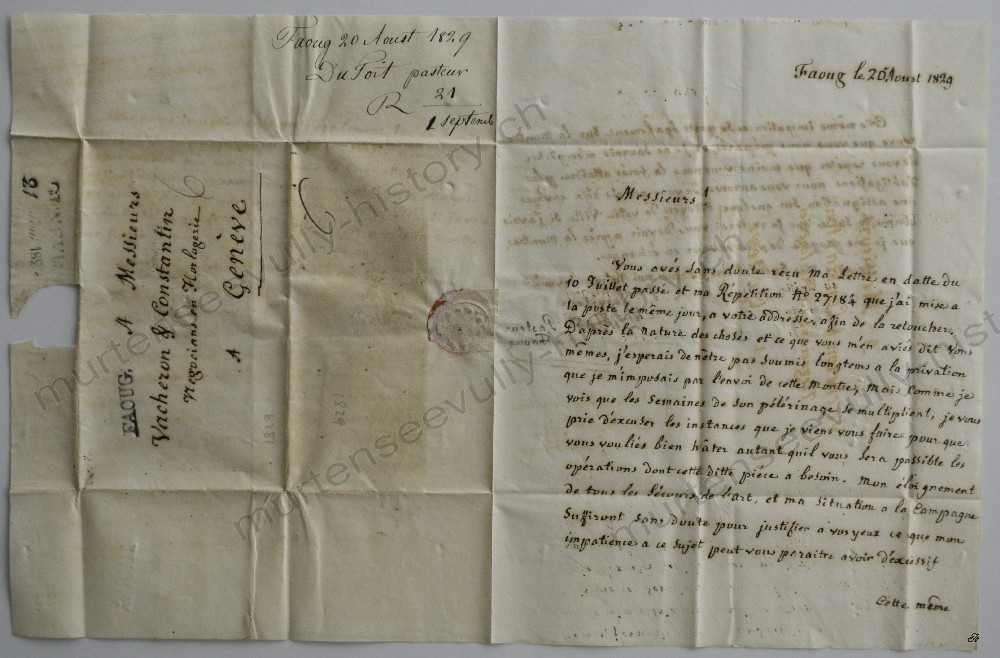 Faoug 20 Aoust 1829
DuPoit pasteur
R 21
1 septemb
FAOUG. A Messieurs
Vacheron & Constantin
Negocians en Horlogerie
A
Genève
1829
Faoug le 20 Aoust 1829
Messieurs !
Vous avés sans doute reçu ma lettre en datte du
10 Juillet passé et ma Répétition No 27184 que j'ai mise a
la poste le même jour, a votre addresse, afin de la retoucher.
D'après la nature des choses et ce que vous m'en aviés dit vous
mêmes, j'esperais de n'etre pas soumis longtems a la privation
que je m'imposais par l'envoi de cette Montre, mais comme je
vois que les semaines de son pélérinage se multiplient, je vous
prie d'excuser les instances que je viens vous faire pour que
vous vouliés bien hâter autant qu'il vous sera possible les
opérations dont cette ditte piece a besoin. Mon éloignement
de tous les sécours de l'art, et ma situation a la Campagne
suffiront sans doute pour justifier a vos yeux ce que mon
impatience a ce sujet peut vous paraitre avoir d'excessif
Cette même
murtenseevully-history.ch
murtenseevully-history.ch
murtenseevully-hist